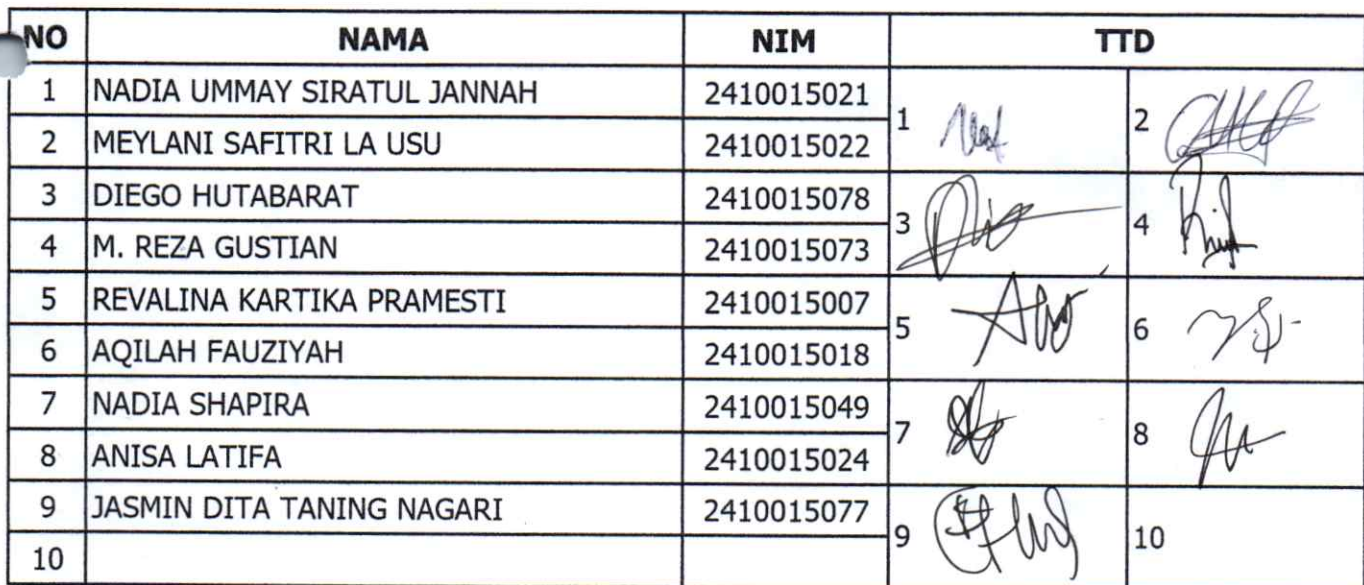 NO NAMA NIM TTD
1 NADIA UMMAY SIRATUL JANNAH 2410015021 1 2
2 MEYLANI SAFITRI LA USU 2410015022
3 DIEGO HUTABARAT 2410015078 3 4
4 M. REZA GUSTIAN 2410015073
5 REVALINA KARTIKA PRAMESTI 2410015007 5 6
6 AQILAH FAUZIYAH 2410015018
7 NADIA SHAPIRA 2410015049 7 8
8 ANISA LATIFA 2410015024
9 JASMIN DITA TANING NAGARI 2410015077 9 10
10